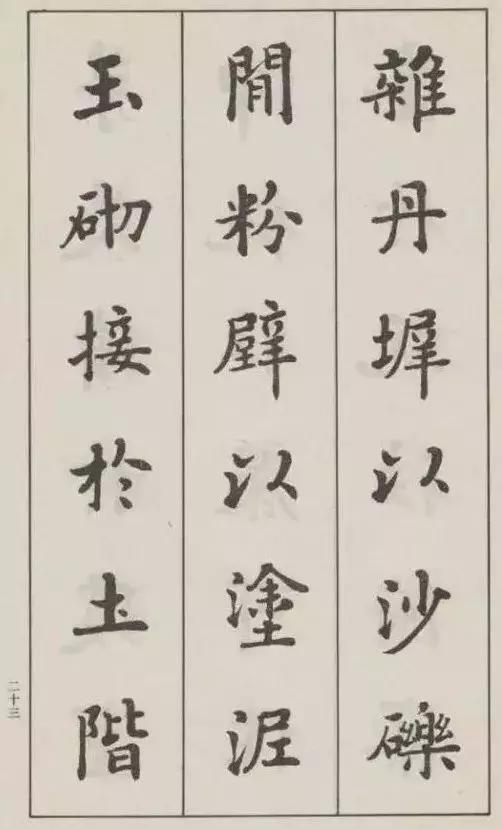 雜丹墀以沙礫
間粉壁以塗泥
玉砌接於土階
二十三